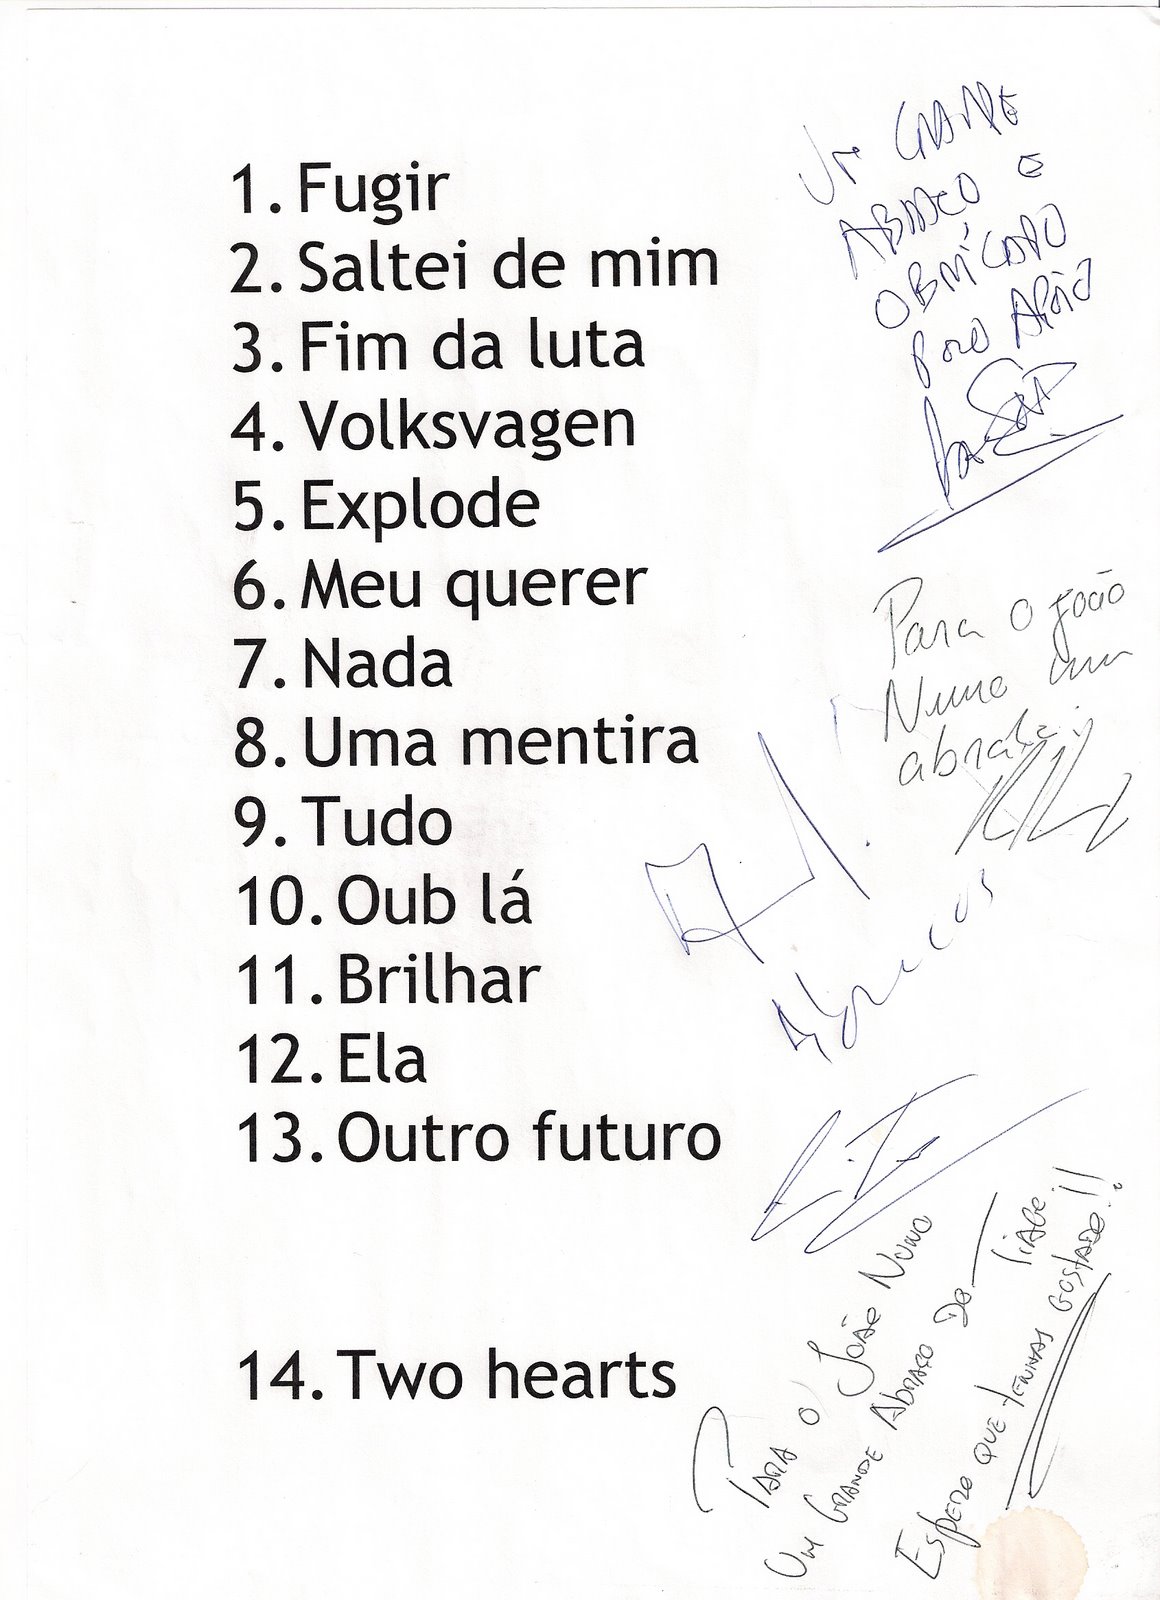 1. Fugir
2. Saltei de mim
3. Fim da luta
4. Volksvagen
5. Explode
6. Meu querer
7. Nada
8. Uma mentira
9. Tudo
10. Oub lá
11. Brilhar
12. Ela
13. Outro futuro
14. Two hearts
Um GRANDE
ABRAÇO e
OBRIGADO
PELO APOIO
Para o João
Nuno um
abraço
Abraços
PARA O JOÃO NUNO
UM GRANDE ABRAÇO DO TIAGO
ESPERO QUE TENHAS GOSTADO!!